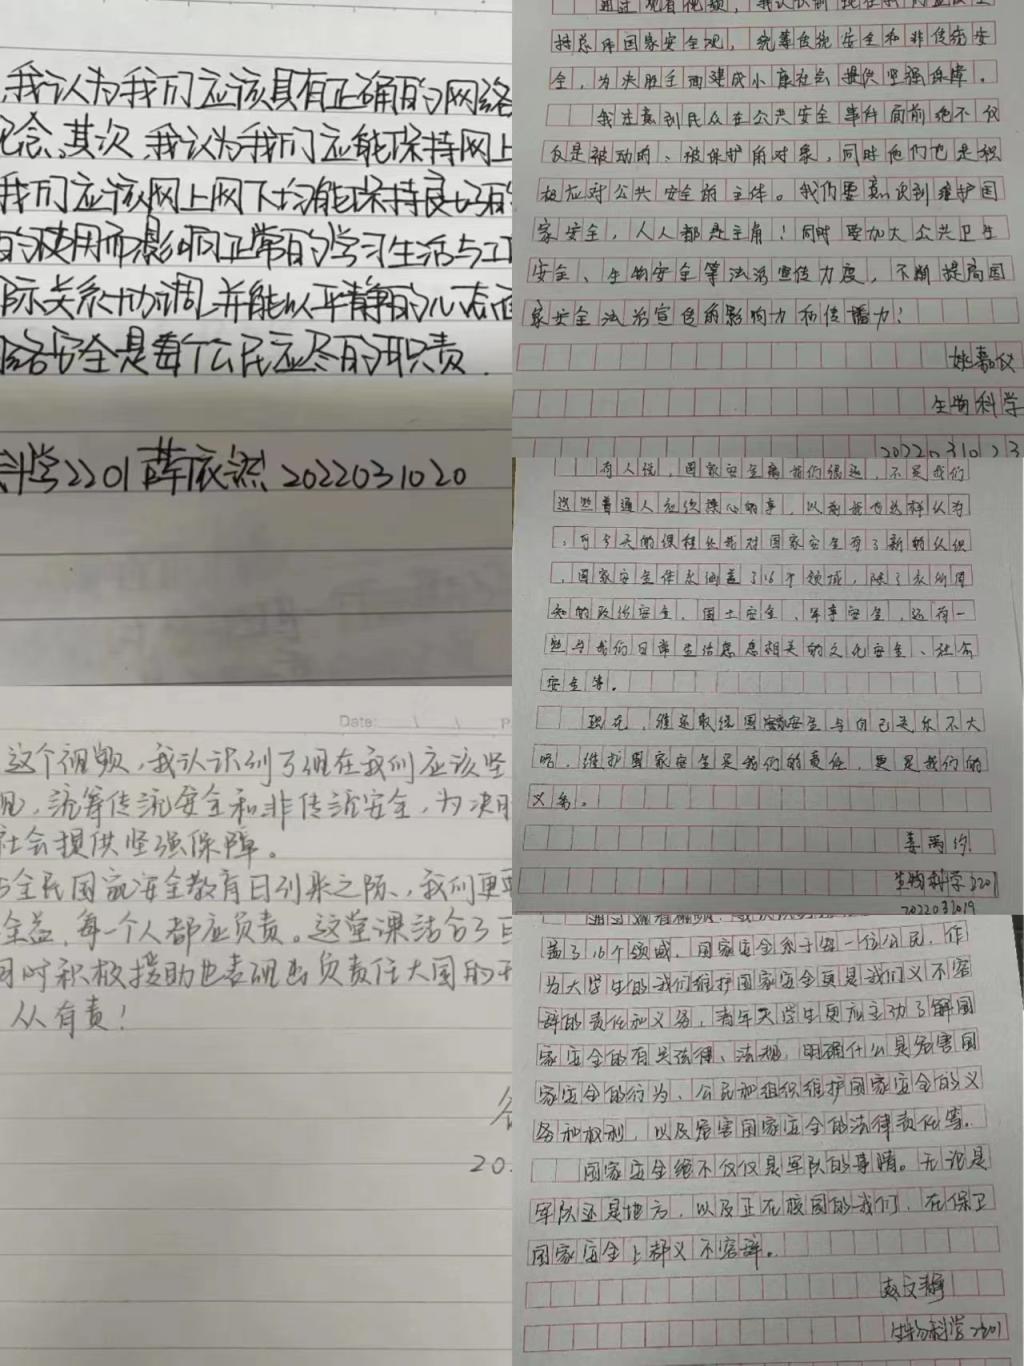 我认为我们应该具有正确的网络
念,其次,我认为我们应能保持网上
我们应该网上网下均能保持良好的
的使用而影响正常的学习生活与工
际关系协调,并能以平静的心态面
络安全是每个公民应尽的职责.
科学2201 薛依然 2022031020
Date:
这个视频,我认识到了现在我们应该坚
观,统筹传统安全和非传统安全,为决胜
社会提供坚强保障。
全民国家安全教育日到来之际,我们更
全益,每一个人都应负责。这堂课结合了
同时积极援助也表现出负责任大国的
从有责!
20
通过观看视频,我认识到现在我们应该坚
持总体国家安全观,统筹传统安全和非传统安
全,为决胜全面建成小康社会提供坚强保障。
我注意到民众在公共安全事件面前绝不仅
仅是被动的、被保护的对象,同时他们也是积
极应对公共安全的主体。我们要意识到维护国
家安全,人人都是主角!同时要加大公共卫生
安全、生物安全等法治宣传力度,不断提高国
家安全法治宣传的影响力和传播力!
姚嘉仪
生物科学
2022031023
有人说,国家安全离我们很远,不是我们
这些普通人应该操心的事,以前我也这样认为
,可今天的课程让我对国家安全有了新的认识
,国家安全体系涵盖了16个领域,除了众所周
知的政治安全、国土安全、军事安全,还有一
些与我们日常生活息息相关的文化安全、社会
安全等。
现在,谁还敢说国家安全与自己关系不大
呢,维护国家安全是我们的责任,更是我们的
义务。
姜雨约
生物科学2201
2022032019
通过观看视频,我认识到
盖了16个领域,国家安全系于每一位公民,作
为大学生的我们维护国家安全更是我们义不容
辞的责任和义务,青年大学生更应主动了解国
家安全的有关法律、法规,明确什么是危害国
家安全的行为、公民和组织维护国家安全的义
务和权利,以及危害国家安全的法律责任等。
国家安全绝不仅仅是军队的事情。无论是
军队还是地方,以及正在校园的我们,在保卫
国家安全上都义不容辞。
赵文静
生物科学2201